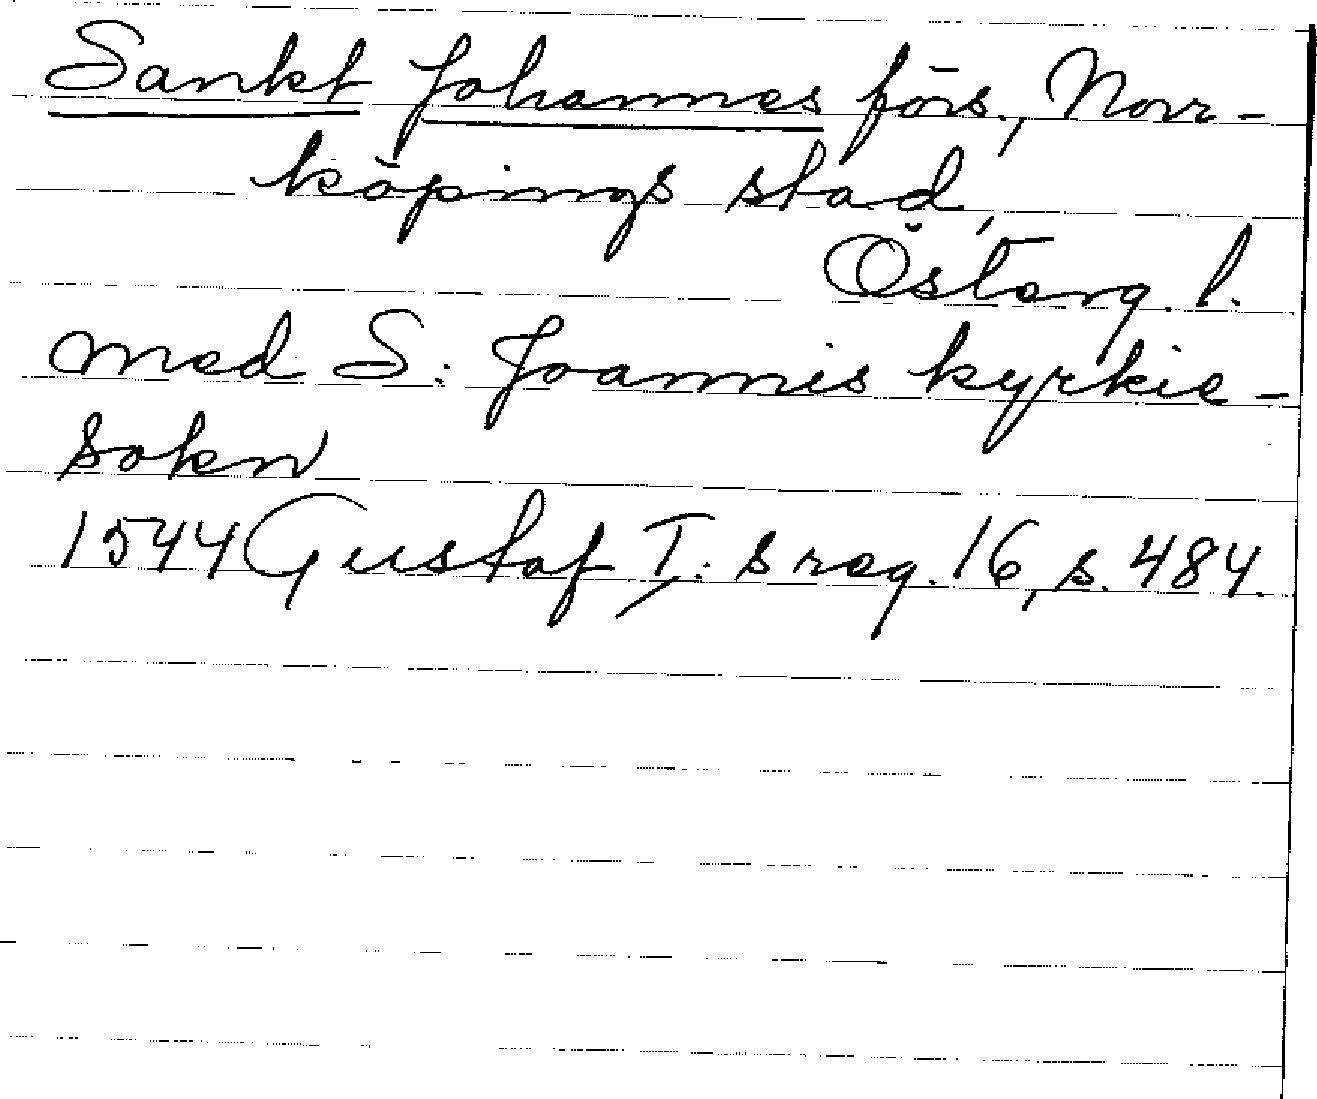 Sankt Johannes förs., Norr-
köpings stad,
Österg. l.
med S: Joannis kyrkie-
sokn
1544 Gustaf I:s reg. 16, s. 484.